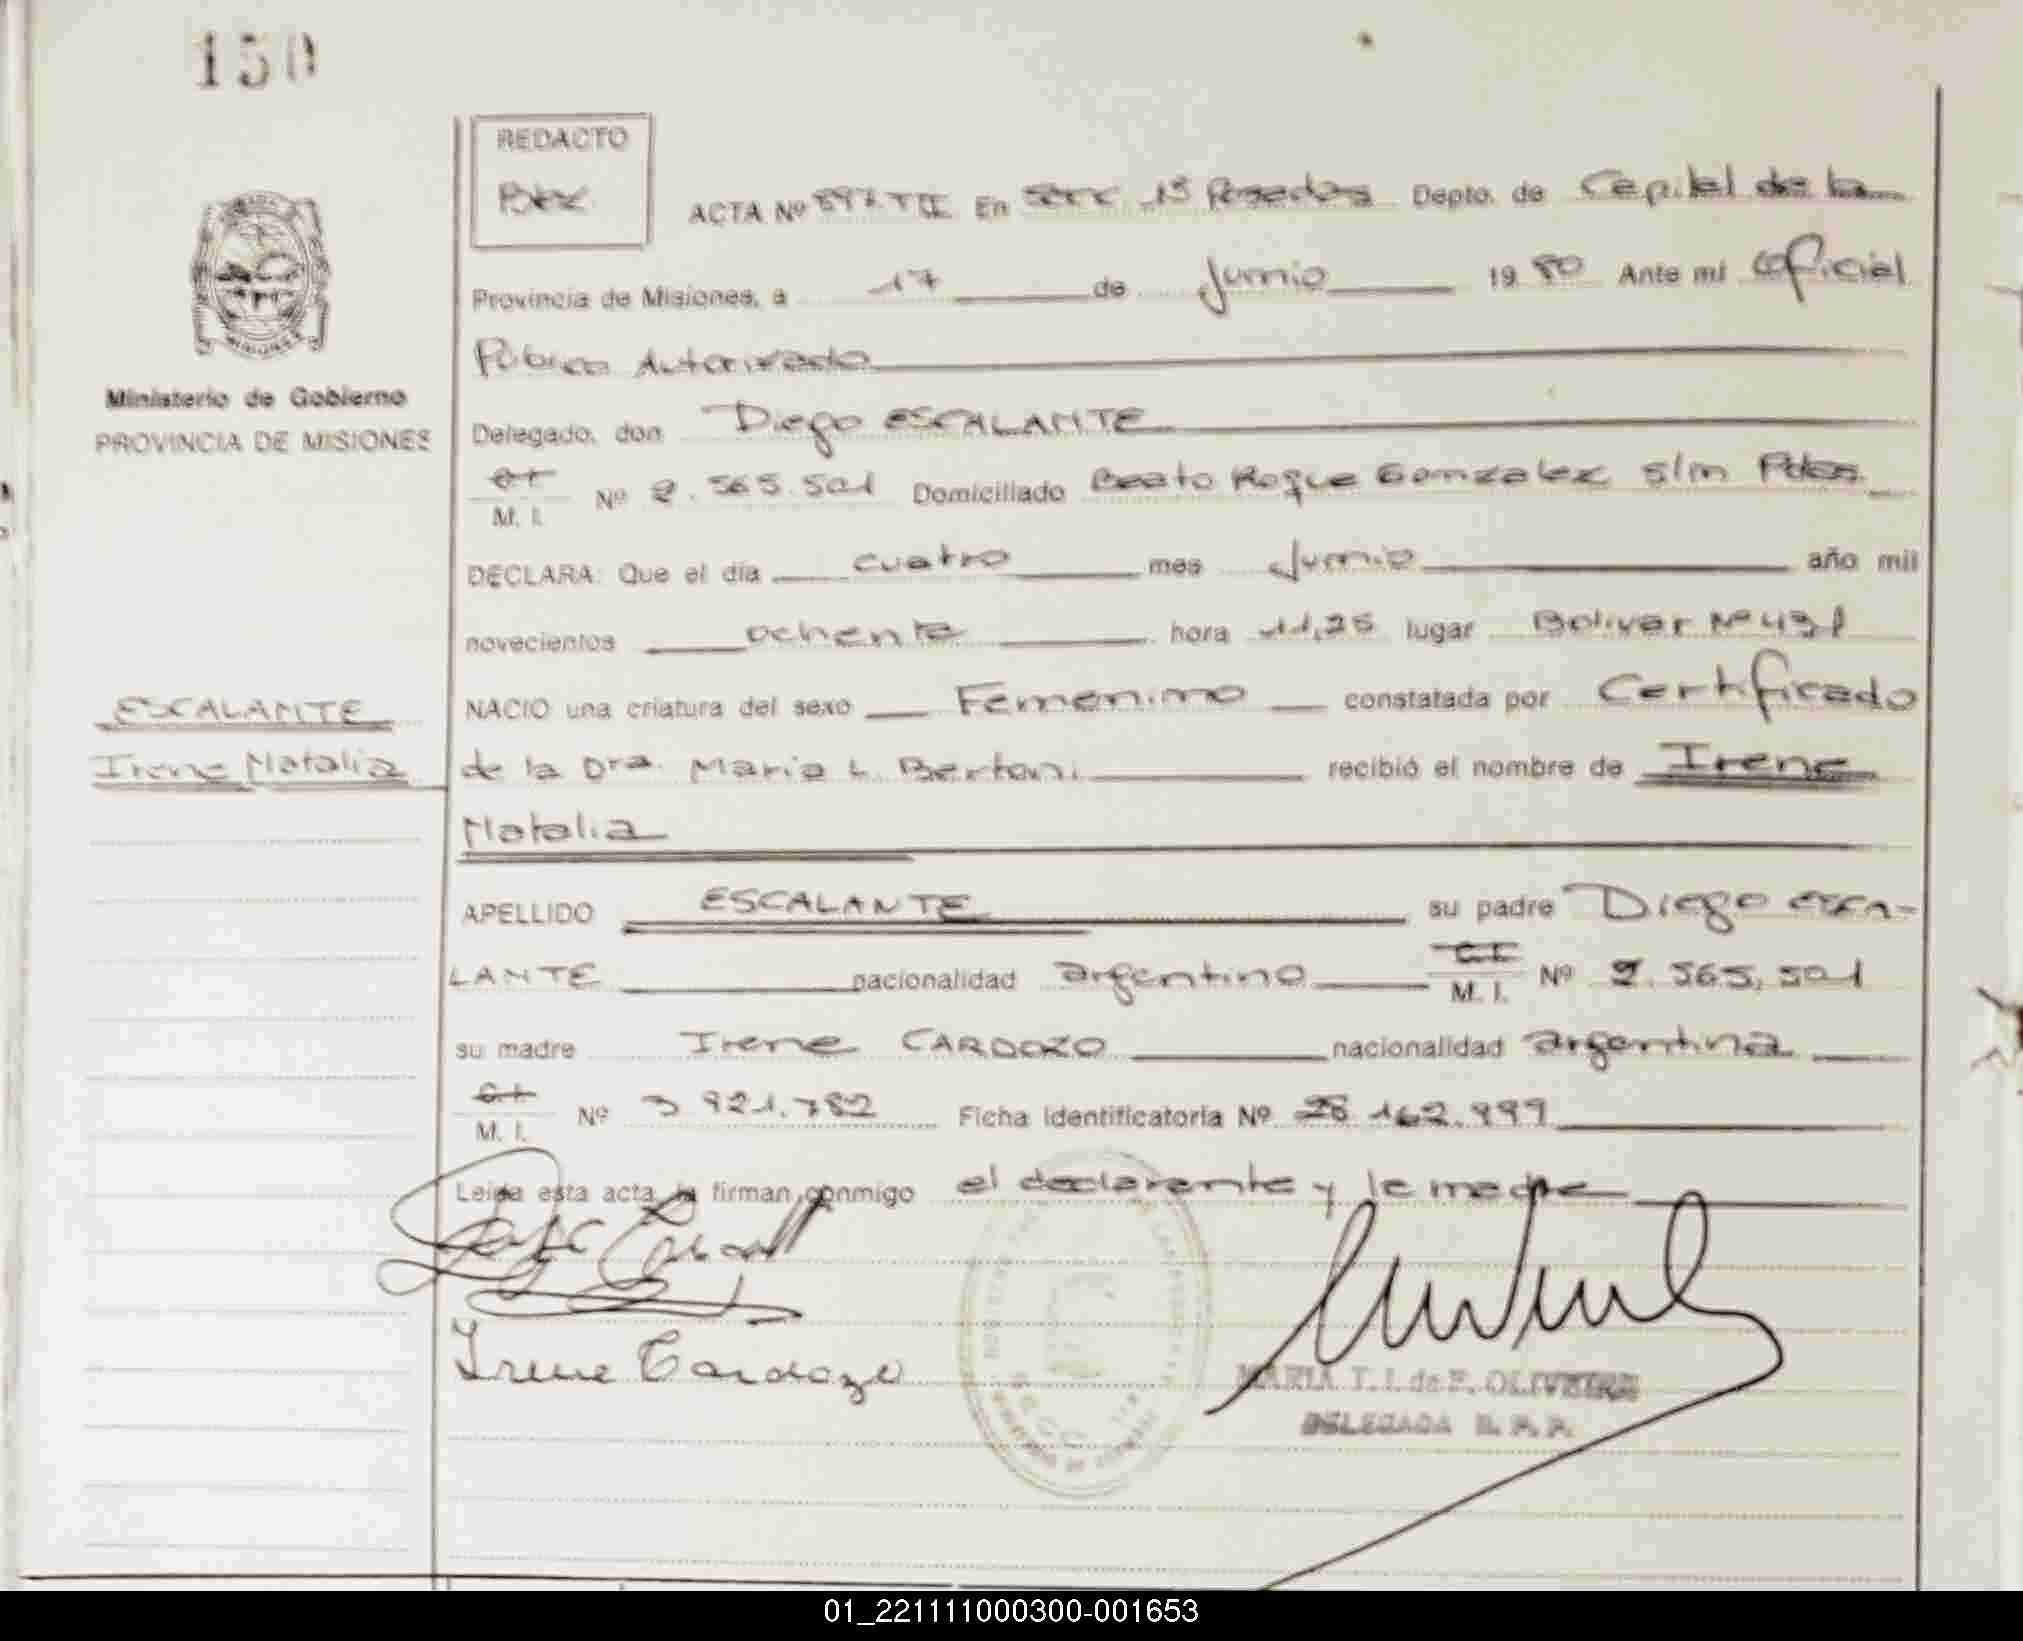 150
REDACTO
ACTA Nº 597 TII En Secc 15 Posadas Depto. de Capital de la
Provincia de Misiones, a 17 de Junio 1980 Ante mi Oficial
Público Autorizado
Ministerio de Gobierno
PROVINCIA DE MISIONES
Delegado, don Diego ESCALANTE
M. I. Nº 2.565.501 Domiciliado Beato Roque Gonzalez s/n Pdas.
DECLARA: Que el día cuatro mes Junio año mil
novecientos ochenta hora 11,25 lugar Bolivar Nº 431
ESCALANTE
Irene Natalia
NACIO una criatura del sexo Femenino constatada por Certificado
de la Dra. Maria L. Bertoni recibió el nombre de Irene
Natalia
APELLIDO ESCALANTE su padre Diego ESCA-
LANTE nacionalidad argentino C.I. M. I. Nº 2.565.501
su madre Irene CARDOZO nacionalidad argentina
M. I. Nº 3 921.782 Ficha Identificatoria Nº 28 162.999
Leída esta acta la firman conmigo el declarante y la madre
Irene Cardozo
MARIA T. I. de F. OLIVEIRA
DELEGADA R. P. P.
01_221111000300-001653